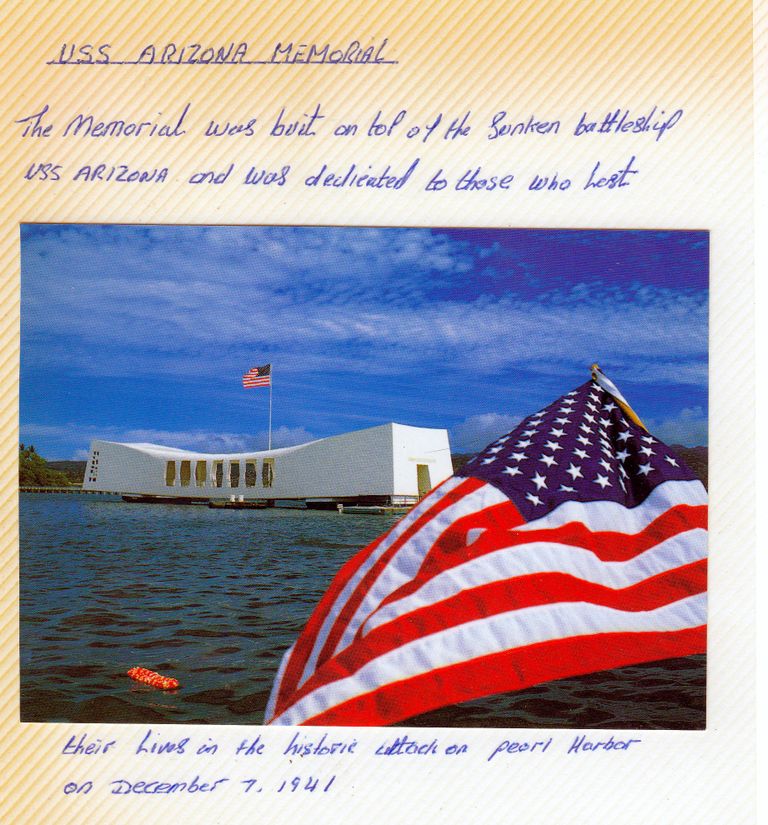 USS ARIZONA MEMORIAL
The Memorial was buit on top of the Sunken battleship
USS ARIZONA and was dedicated to those who Lost
their Lives in the historic attack on pearl Harbor
on December 7, 1941